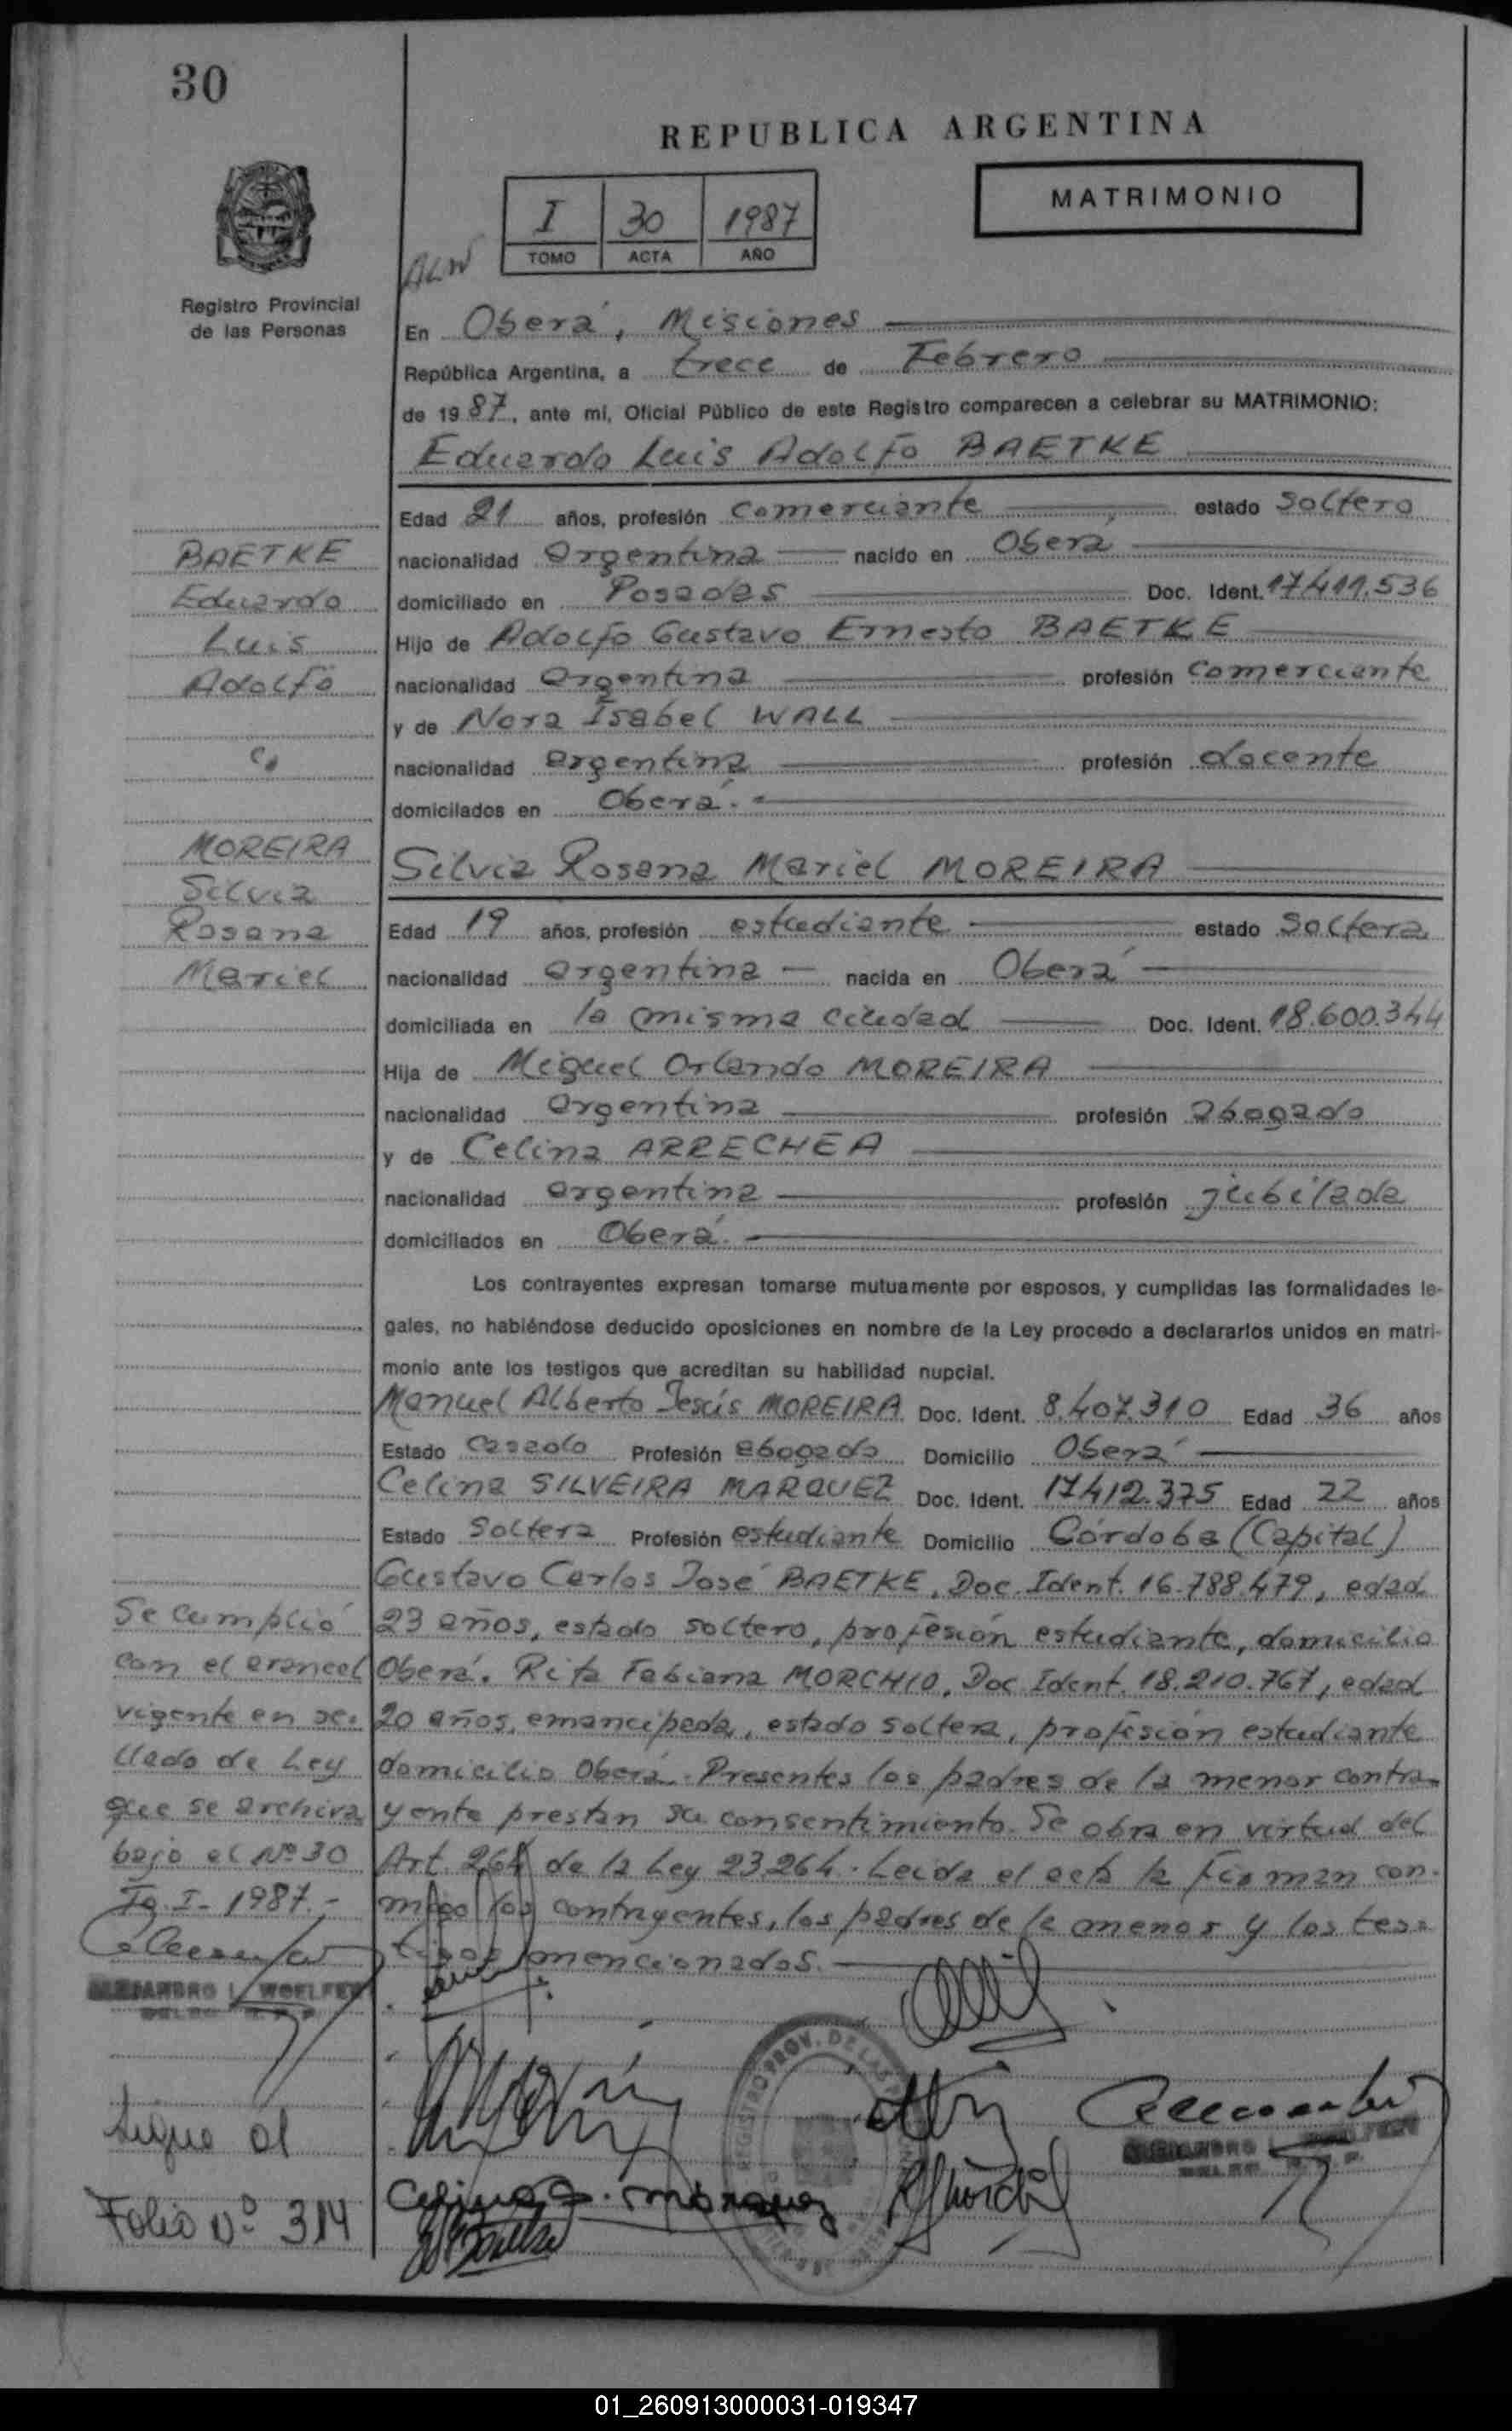 30
REPUBLICA ARGENTINA
MATRIMONIO
I 30 1987
TOMO ACTA AÑO
ALW
Registro Provincial
de las Personas
En Oberá, Misiones
República Argentina, a trece de Febrero
de 1987, ante mi, Oficial Público de este Registro comparecen a celebrar su MATRIMONIO:
Eduardo Luis Adolfo BAETKE
Edad 21 años, profesión comerciante estado soltero
BAETKE
nacionalidad argentina nacido en Oberá
Eduardo
domiciliado en Posadas Doc. Ident. 17.411.536
Luis
Hijo de Adolfo Gustavo Ernesto BAETKE
Adolfo
nacionalidad argentina profesión comerciante
y de Nora Isabel WALL
c/
nacionalidad argentina profesión docente
domicilados en Oberá.-
MOREIRA
Silvia Rosana Mariel MOREIRA
Silvia
Rosana
Edad 19 años, profesión estudiante estado soltera
Mariel
nacionalidad argentina nacida en Oberá
domiciliada en la misma ciudad Doc. Ident. 18.600.344
Hija de Miguel Orlando MOREIRA
nacionalidad argentina profesión abogado
y de Celina ARRECHEA
nacionalidad argentina profesión jubilada
domiciliados en Oberá.
Los contrayentes expresan tomarse mutuamente por esposos, y cumplidas las formalidades le-
gales, no habiéndose deducido oposiciones en nombre de la Ley procedo a declararlos unidos en matri-
monio ante los testigos que acreditan su habilidad nupcial.
Manuel Alberto Jesús MOREIRA Doc. Ident. 8.407.310 Edad 36 años
Estado casado Profesión abogado Domicilio Oberá
Celina SILVEIRA MARQUEZ Doc. Ident. 17.412.375 Edad 22 años
Estado soltera Profesión estudiante Domicilio Córdoba (Capital)
Gustavo Carlos José BAETKE, Doc. Ident. 16.788.479, edad
23 años, estado soltero, profesión estudiante, domicilio
Oberá. Rita Fabiana MORCHIO, Doc. Ident. 18.210.767, edad
20 años, emancipada, estado soltera, profesión estudiante
domicilio Oberá. Presentes los padres de la menor contra-
yente prestan su consentimiento. Se obra en virtud del
Art. 264 de la Ley 23.264. Leida el acta la firman con-
migo los contrayentes, los padres de la menor y los tes-
tigos mencionados.
Se cumplió
con el arancel
vigente en se-
llado de Ley
que se archiva
bajo el Nº 30
Tº. I- 1987.-
ALEJANDRO L. WOELFERT
Sigue al
Folio Nº 314
REGISTRO PROV. DE LAS
Celina S. Márquez
01_260913000031-019347